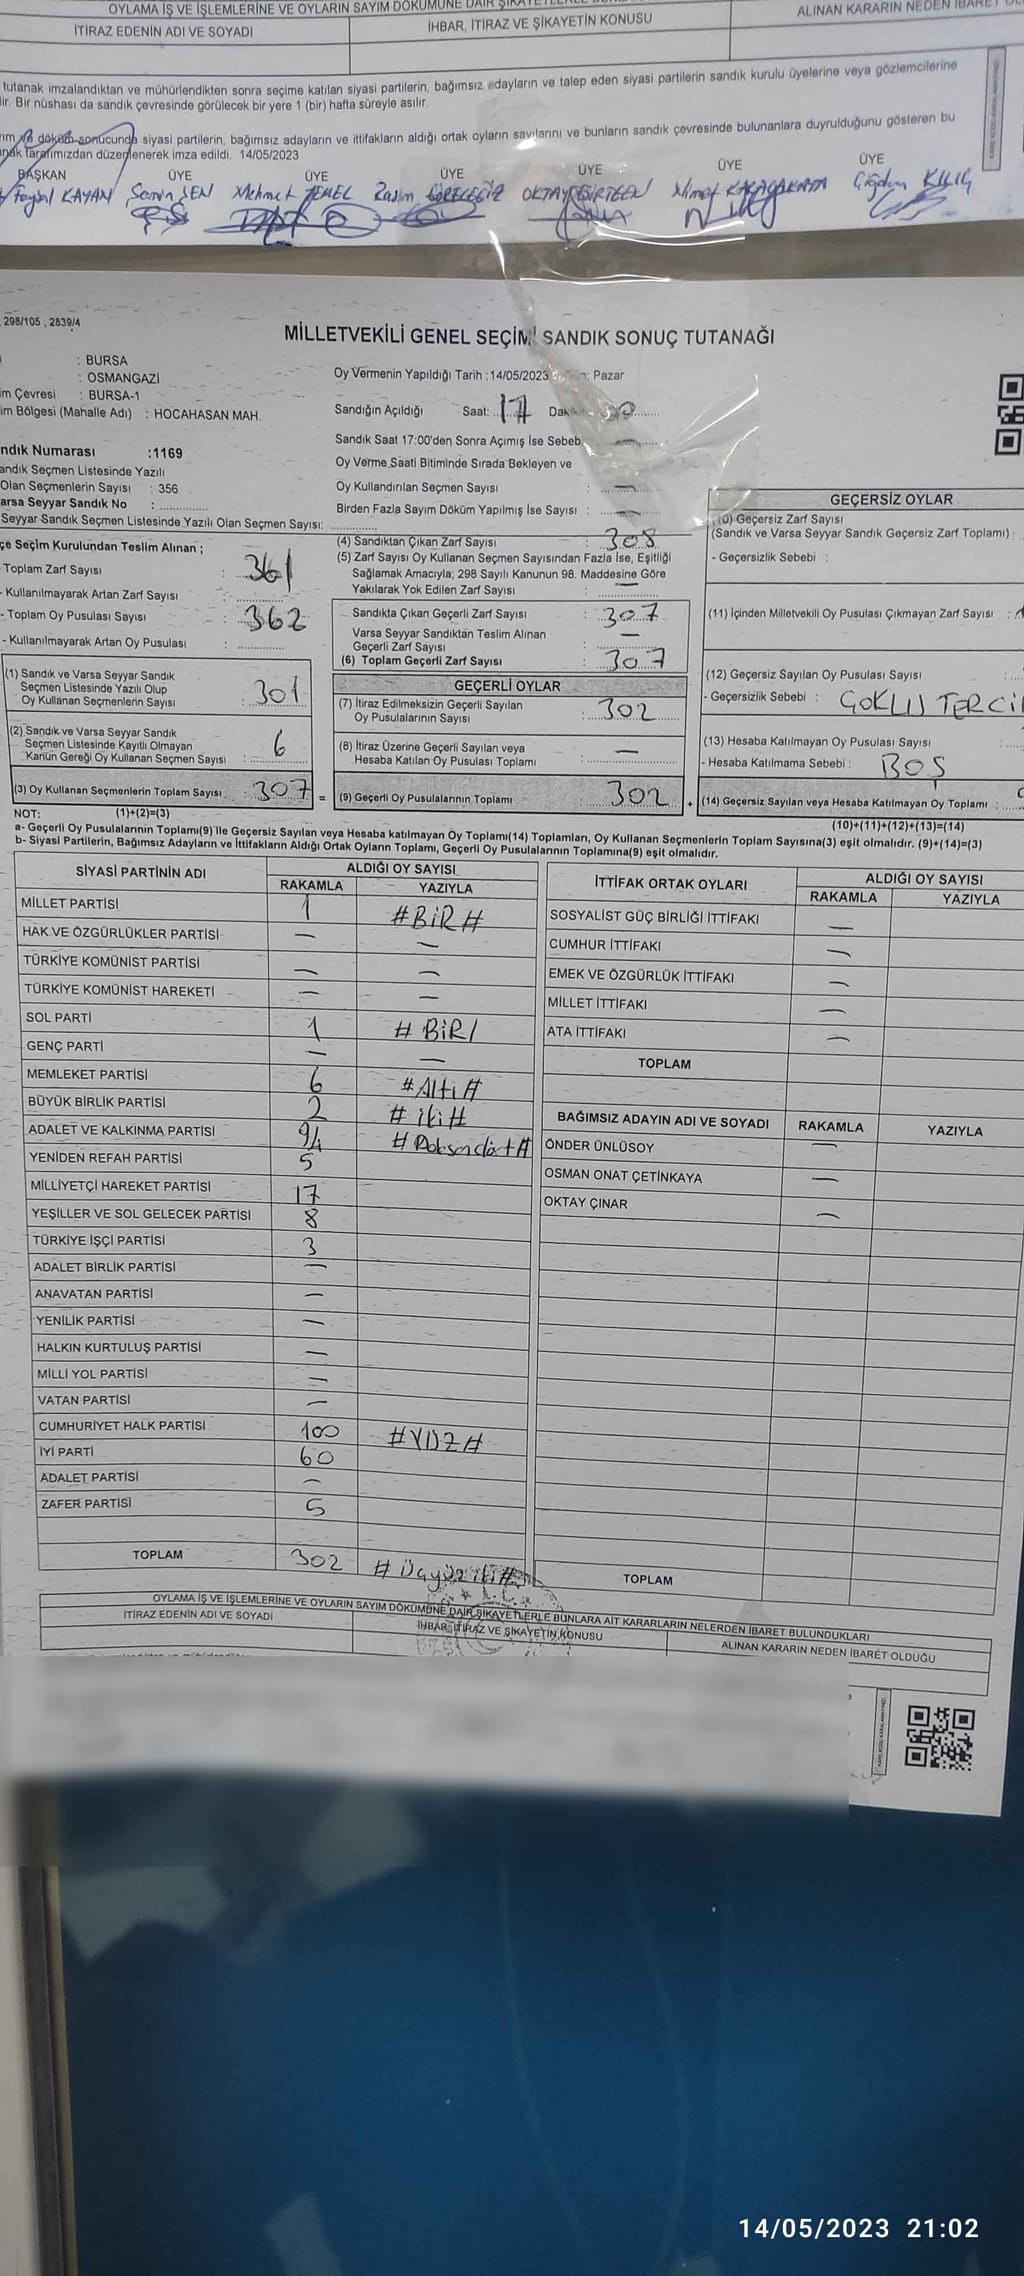 OYLAMA İŞ VE İŞLEMLERİNE VE OYLARIN SAYIM DÖKÜMÜNE DAİR
İTİRAZ EDENİN ADI VE SOYADI
İHBAR, İTİRAZ VE ŞİKAYETİN KONUSU
ALINAN KARARIN NEDEN İBARET
tutanak imzalandıktan ve mühürlendikten sonra seçime katılan siyasi partilerin, bağımsız adayların ve talep eden siyasi partilerin sandık kurulu üyelerine veya gözlemcilerine
Bir nüshası da sandık çevresinde görülecek bir yere 1 (bir) hafta süreyle asılır.
ve döküm sonucunda siyasi partilerin, bağımsız adayların ve ittifakların aldığı ortak oyların sayılarını ve bunların sandık çevresinde bulunanlara duyrulduğunu gösteren bu
tarafımızdan düzenlenerek imza edildi. 14/05/2023
BAŞKAN ÜYE ÜYE ÜYE ÜYE ÜYE ÜYE
KAYAN ŞEN Mehmet TEMEL Rasim OKTAY Nimet KILIÇ
298/105 , 2839/4
MİLLETVEKİLİ GENEL SEÇİMİ SANDIK SONUÇ TUTANAĞI
: BURSA
: OSMANGAZİ
im Çevresi : BURSA-1
im Bölgesi (Mahalle Adı) : HOCAHASAN MAH.
Oy Vermenin Yapıldığı Tarih :14/05/2023 : Pazar
Sandığın Açıldığı Saat: 17 Dak
Sandık Saat 17:00'den Sonra Açımış İse Sebeb
Oy Verme Saati Bitiminde Sırada Bekleyen ve
Oy Kullandırılan Seçmen Sayısı : —
Birden Fazla Sayım Döküm Yapılmış İse Sayısı : —
ndık Numarası :1169
andık Seçmen Listesinde Yazılı
Olan Seçmenlerin Sayısı : 356
arsa Seyyar Sandık No :
Seyyar Sandık Seçmen Listesinde Yazılı Olan Seçmen Sayısı:
çe Seçim Kurulundan Teslim Alınan ;
Toplam Zarf Sayısı : 361
- Kullanılmayarak Artan Zarf Sayısı :
- Toplam Oy Pusulası Sayısı : 362
- Kullanılmayarak Artan Oy Pusulası :
(1) Sandık ve Varsa Seyyar Sandık
Seçmen Listesinde Yazılı Olup
Oy Kullanan Seçmenlerin Sayısı : 301
(2) Sandık ve Varsa Seyyar Sandık
Seçmen Listesinde Kayıtlı Olmayan
Kanun Gereği Oy Kullanan Seçmen Sayısı : 6
(3) Oy Kullanan Seçmenlerin Toplam Sayısı 307
(4) Sandıktan Çıkan Zarf Sayısı : 308
(5) Zarf Sayısı Oy Kullanan Seçmen Sayısından Fazla İse, Eşitliği
Sağlamak Amacıyla; 298 Sayılı Kanunun 98. Maddesine Göre
Yakılarak Yok Edilen Zarf Sayısı : —
Sandıkta Çıkan Geçerli Zarf Sayısı : 307
Varsa Seyyar Sandıktan Teslim Alınan
Geçerli Zarf Sayısı : —
(6) Toplam Geçerli Zarf Sayısı : 307
GEÇERLİ OYLAR
(7) İtiraz Edilmeksizin Geçerli Sayılan
Oy Pusulalarının Sayısı : 302
(8) İtiraz Üzerine Geçerli Sayılan veya
Hesaba Katılan Oy Pusulası Toplamı : —
= (9) Geçerli Oy Pusulalarının Toplamı : 302
GEÇERSİZ OYLAR
(10) Geçersiz Zarf Sayısı
(Sandık ve Varsa Seyyar Sandık Geçersiz Zarf Toplamı) :
- Geçersizlik Sebebi :
(11) İçinden Milletvekili Oy Pusulası Çıkmayan Zarf Sayısı :
(12) Geçersiz Sayılan Oy Pusulası Sayısı
- Geçersizlik Sebebi : ÇOKLU TERCİ
(13) Hesaba Katılmayan Oy Pusulası Sayısı
- Hesaba Katılmama Sebebi : BOŞ
+ (14) Geçersiz Sayılan veya Hesaba Katılmayan Oy Toplamı :
NOT: (1)+(2)=(3)
(10)+(11)+(12)+(13)=(14)
a- Geçerli Oy Pusulalarının Toplamı(9) ile Geçersiz Sayılan veya Hesaba katılmayan Oy Toplamı(14) Toplamları, Oy Kullanan Seçmenlerin Toplam Sayısına(3) eşit olmalıdır. (9)+(14)=(3)
b- Siyasi Partilerin, Bağımsız Adayların ve İttifakların Aldığı Ortak Oyların Toplamı, Geçerli Oy Pusulalarının Toplamına(9) eşit olmalıdır.
SİYASİ PARTİNİN ADI ALDIĞI OY SAYISI
RAKAMLA YAZIYLA
MİLLET PARTİSİ 1 #BİR#
HAK VE ÖZGÜRLÜKLER PARTİSİ — —
TÜRKİYE KOMÜNİST PARTİSİ — —
TÜRKİYE KOMÜNİST HAREKETİ — —
SOL PARTİ 1 # BİR/
GENÇ PARTİ — —
MEMLEKET PARTİSİ 6 #Altı#
BÜYÜK BİRLİK PARTİSİ 2 # iki#
ADALET VE KALKINMA PARTİSİ 94 #Doksandört#
YENİDEN REFAH PARTİSİ 5
MİLLİYETÇİ HAREKET PARTİSİ 17
YEŞİLLER VE SOL GELECEK PARTİSİ 8
TÜRKİYE İŞÇİ PARTİSİ 3
ADALET BİRLİK PARTİSİ —
ANAVATAN PARTİSİ —
YENİLİK PARTİSİ —
HALKIN KURTULUŞ PARTİSİ —
MİLLİ YOL PARTİSİ —
VATAN PARTİSİ —
CUMHURİYET HALK PARTİSİ 100 #YÜZ#
İYİ PARTİ 60
ADALET PARTİSİ —
ZAFER PARTİSİ 5
TOPLAM 302 #Üçyüziki#
İTTİFAK ORTAK OYLARI ALDIĞI OY SAYISI
RAKAMLA YAZIYLA
SOSYALİST GÜÇ BİRLİĞİ İTTİFAKI —
CUMHUR İTTİFAKI —
EMEK VE ÖZGÜRLÜK İTTİFAKI —
MİLLET İTTİFAKI —
ATA İTTİFAKI —
TOPLAM
BAĞIMSIZ ADAYIN ADI VE SOYADI RAKAMLA YAZIYLA
ÖNDER ÜNLÜSOY —
OSMAN ONAT ÇETİNKAYA —
OKTAY ÇINAR —
TOPLAM
OYLAMA İŞ VE İŞLEMLERİNE VE OYLARIN SAYIM DÖKÜMÜNE DAİR ŞİKAYETLERLE BUNLARA AİT KARARLARIN NELERDEN İBARET BULUNDUKLARI
İTİRAZ EDENİN ADI VE SOYADI
İHBAR, İTİRAZ VE ŞİKAYETİN KONUSU
ALINAN KARARIN NEDEN İBARET OLDUĞU
14/05/2023 21:02